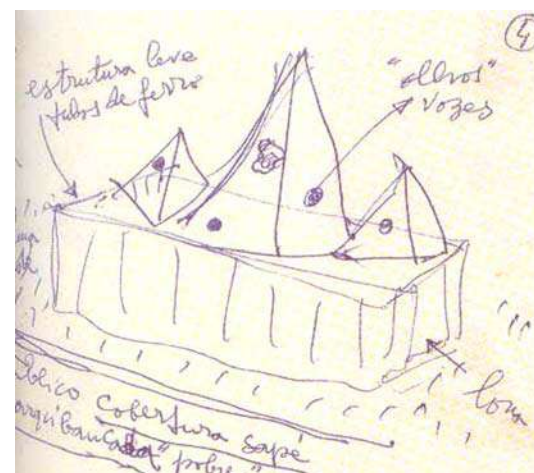 4
estrutura leve
tubos de ferro
"olhos"
vozes
lona
blico cobertura sapé
arquibancada "pobre"